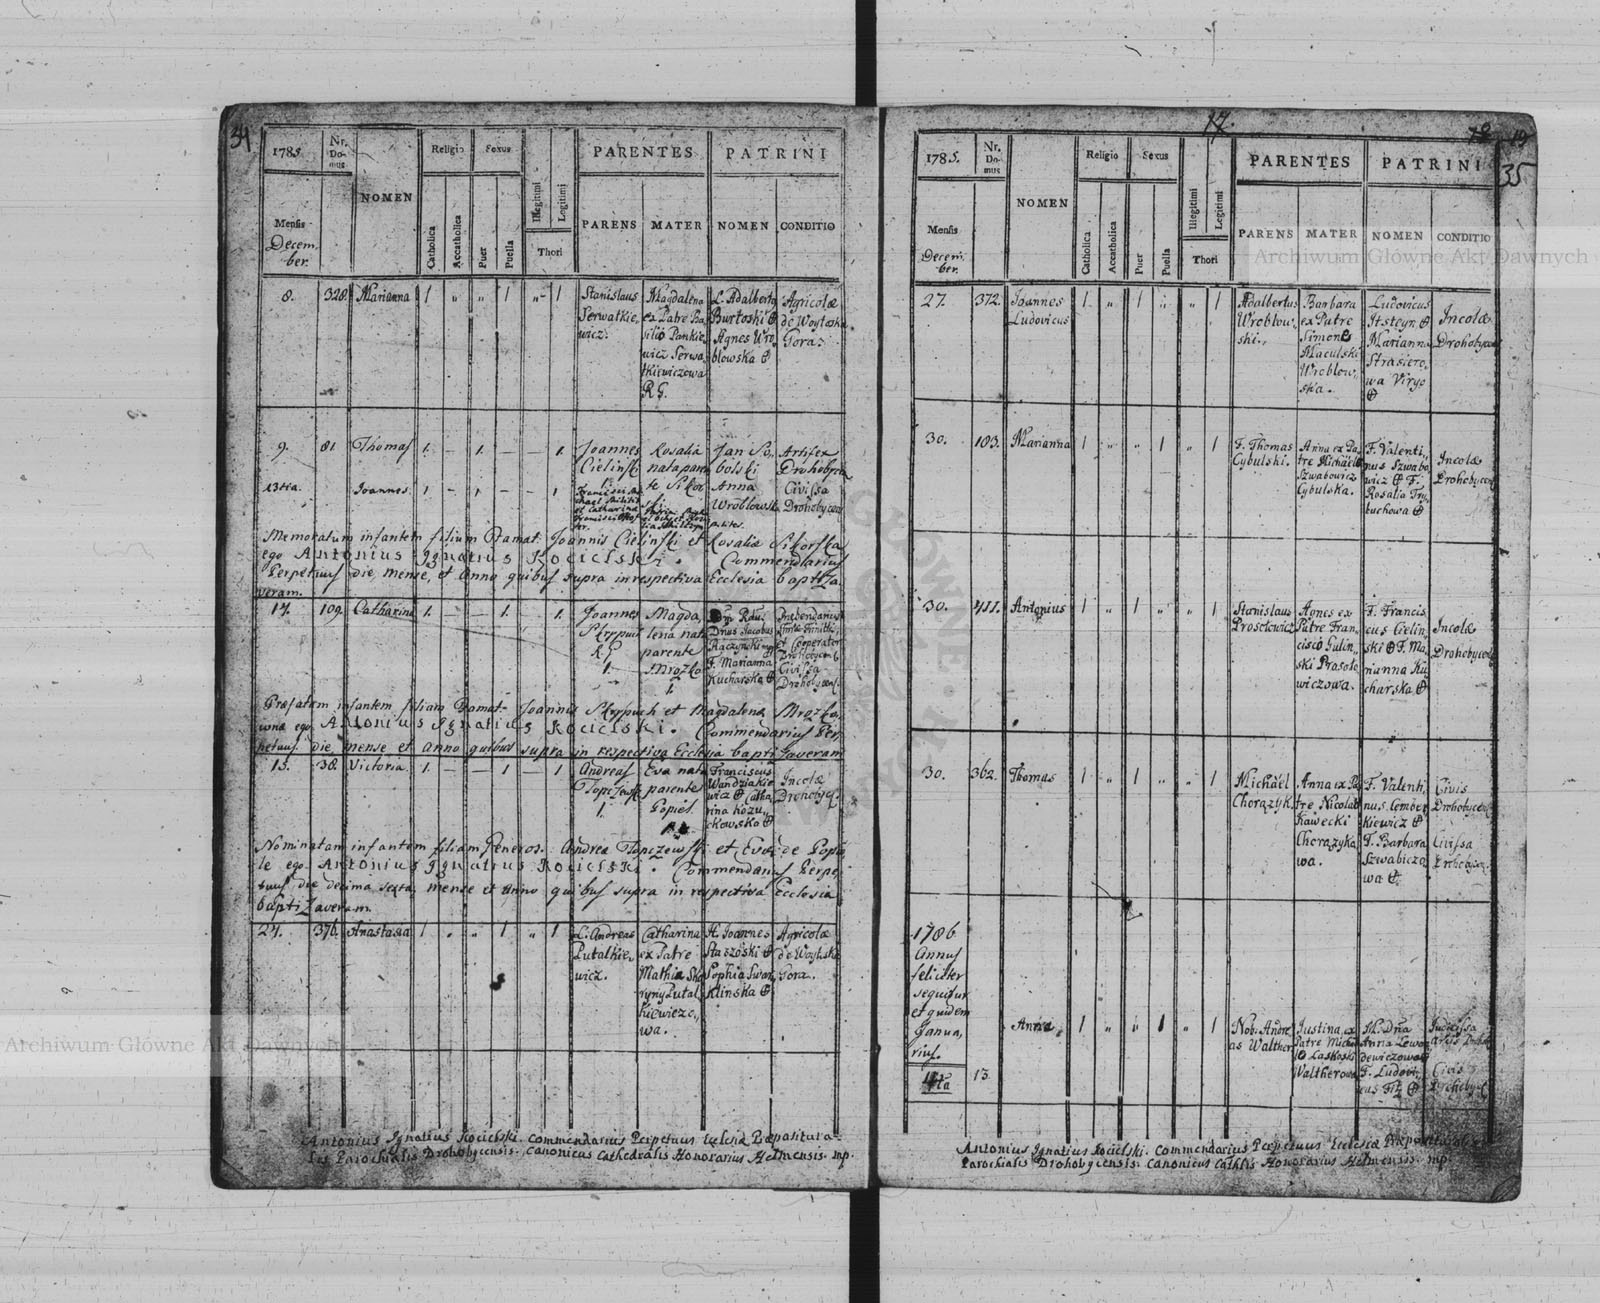 34
1785.
Nr. Do- mus
NOMEN
Religio
Sexus
PARENTES
PATRINI
Catholica
Accatholica
Puer
Puella
Illegitimi
Legitimi
Thori
PARENS
MATER
NOMEN
CONDITIO
Mensis
Decem-
ber.
8. 328. Marianna 1 „ „ 1 „ 1
Stanislaus
Serwatkie,
wicz.
Magdalena
ex Patre Ba
silio Pankie,
wicz Serwa,
tkiewiczowa
R.G.
L. Adalbertg
Burtoski ⊕
Agnes Wro
blowska ⊕
Agricolæ
de Woytoska
Gora.
9. 81 Thomas 1. — 1. — — 1.
Joannes
Cielinski
1.
Rosalia
nata paren
te Sikor
Jan So,
bolski
Anna
Wroblowsk
Artifex
Drohobyca
Civissa
Drohobycen
13tia. Joannes 1 — 1 — — 1
Memoratum infantem filium Damat: Joannis Cielinski et Rosaliæ Sikorska
ego Antonius Ignatius Kocielski. Commendarius
Perpetuus die, mense, et Anno quibus supra in respectiva Ecclesia baptiza
veram.
17. 109. Catharina 1. — — 1. — 1.
Joannes
Skrypuch
R G
1.
Magda,
lena nata
parente
Mrozko
1.
Dnus Jacobus
Raczynski mp
F. Marianna
Kucharska ⊕
et Cooperator
Drohobycen
Civissa
Drohobycens.
Præfatam infantem filiam Damat: Joannis Skrypuch et Magdalenæ Mrozko,
wnæ ego Antonius Ignatius Kocielski. Commendarius Per,
petuus. die, mense et anno quibus supra in respectiva Ecclesia baptizaveram
15. 38. Victoria. 1. — — 1 — 1
Andreas
Topczewsk
1.
Eva nata
parente
Popiel
Franciscus
Wandziakie
wicz ⊕ Catha
rina Kozu,
chowska ⊕
Incolæ
Drohobyc.
Nominatam infantem filiam Generos. Andreæ Topczewski et Evæ de Popie
le ego Antonius Ignatius Kocielski. Commendarius Perpe
tuus die decima sexta, mense et anno quibus supra in respectiva Ecclesia
baptizaveram.
27. 376. Anastasia 1 „ „ 1 „ 1
L. Andreas
Putalkie,
wicz.
Catharina
ex Patre
Mathia Sko
ryny Putal
kiewiczo,
wa.
H. Joannes
Staszoski ⊕
Sophia Swar,
klinska ⊕
Agricolæ
de Woytoska
Gora.
Antonius Ignatius Kocielski. Commendarius Perpetuus Ecclesiæ Præpositura-
lis Parochialis Drohobycensis. Canonicus Cathedralis Honorarius Helmensis. mp.
17.
35
1785.
Nr. Do- mus
NOMEN
Religio
Sexus
PARENTES
PATRINI
Catholica
Accatholica
Puer
Puella
Illegitimi
Legitimi
Thori
PARENS
MATER
NOMEN
CONDITIO
Mensis
Decem-
ber.
27. 372. Joannes
Ludovicus 1 „ 1 „ „ 1
Adalbertus
Wroblow-
ski.,
Barbara
ex Patre
Simone
Maculski
Wroblow,
ska.
Ludovicus
Itsteyn ⊕
Marianna
Strasiero,
wa Virgo
⊕
Incolæ
Drohobycen
30. 183. Marianna 1 „ „ 1 „ 1
F. Thomas
Cybulski.
Anna ex Pa
tre Michaele
Szwabowicz
Cybulska.
F. Valenti,
nus Szwabo
wicz ⊕ F.
Rosalia Try
buchowa ⊕
Incolæ
Drohobycen
30. 411. Antonius 1 „ 1 „ „ 1
Stanislaus
Prosolowicz
Agnes ex
Patre Fran,
cisco Gulin,
ski Prosolo
wiczowa.
F. Francis
cus Cielin,
ski ⊕ F. Ma,
rianna Ku
charska ⊕
Incolæ
Drohobycen
30. 362. Thomas 1 „ 1 „ „ 1
Michaël
Chorązyk.
Anna ex Pa
tre Nicolao
Kawecki
Chorązyko
wa.
F. Valenti,
nus Cember
kiewicz ⊕
F. Barbara
Szwabiczo
wa ⊕.
Civis
Drohobycen.
Civissa
Drohobycen.
1786
Annus
feliciter
sequitur
et quidem
Janua,
rius.
13 Anna 1 „ „ 1 „ 1
Nob. Andre
as Walther
Justina ex
Patre Micha
le Laskoski
Waltherowa
M. Dna
Anna Lewan
dewiczowa ⊕
F. Ludovi,
cus Fitz ⊕
Civis
Drohobyc.
Antonius Ignatius Kocielski. Commendarius Perpetuus Ecclesiæ Præposituralis
Parochialis Drohobycensis. Canonicus Cathlis Honorarius Helmensis. mp.
Archiwum Główne Akt Dawnych
Archiwum Główne Akt Dawnych